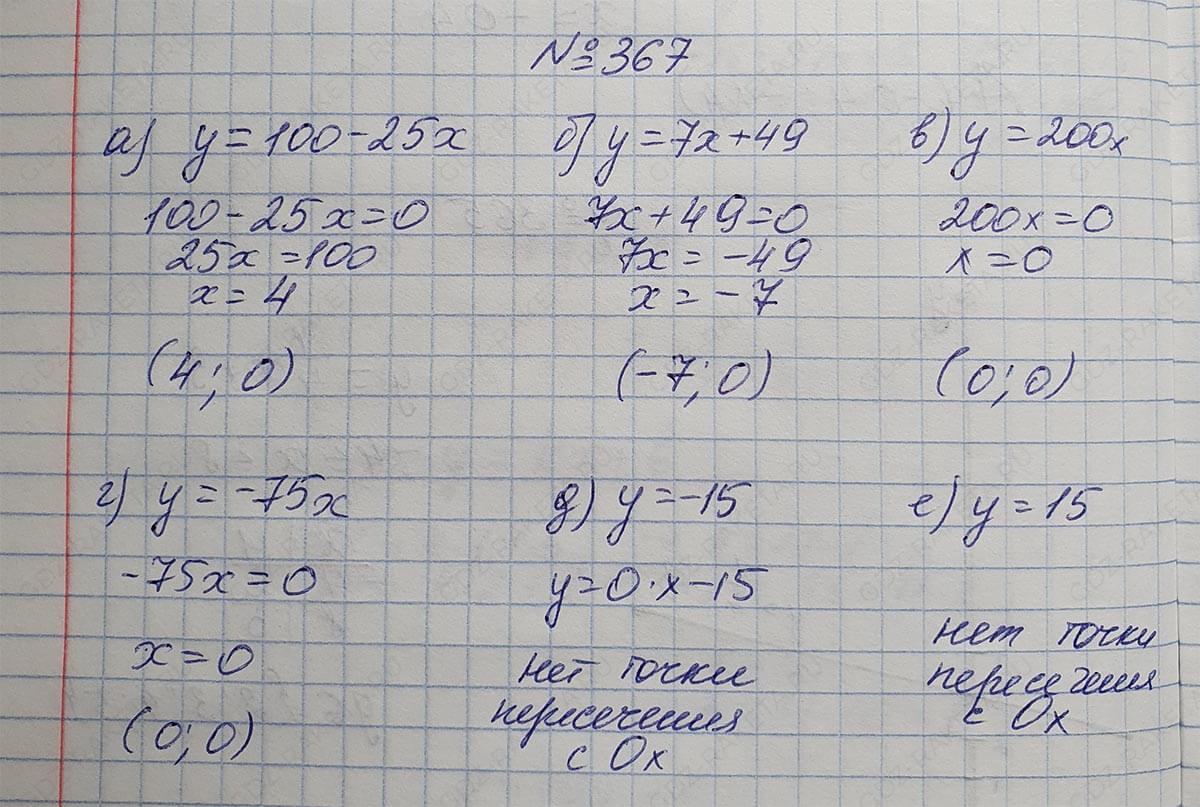 №367
а) y = 100 - 25x
100 - 25x = 0
25x = 100
x = 4
(4; 0)
б) y = 7x + 49
7x + 49 = 0
7x = -49
x = -7
(-7; 0)
в) y = 200x
200x = 0
x = 0
(0; 0)
г) y = -75x
-75x = 0
x = 0
(0; 0)
д) y = -15
y = 0·x - 15
нет точки
пересечения
с Ox
е) y = 15
нет точки
пересечения
с Ox